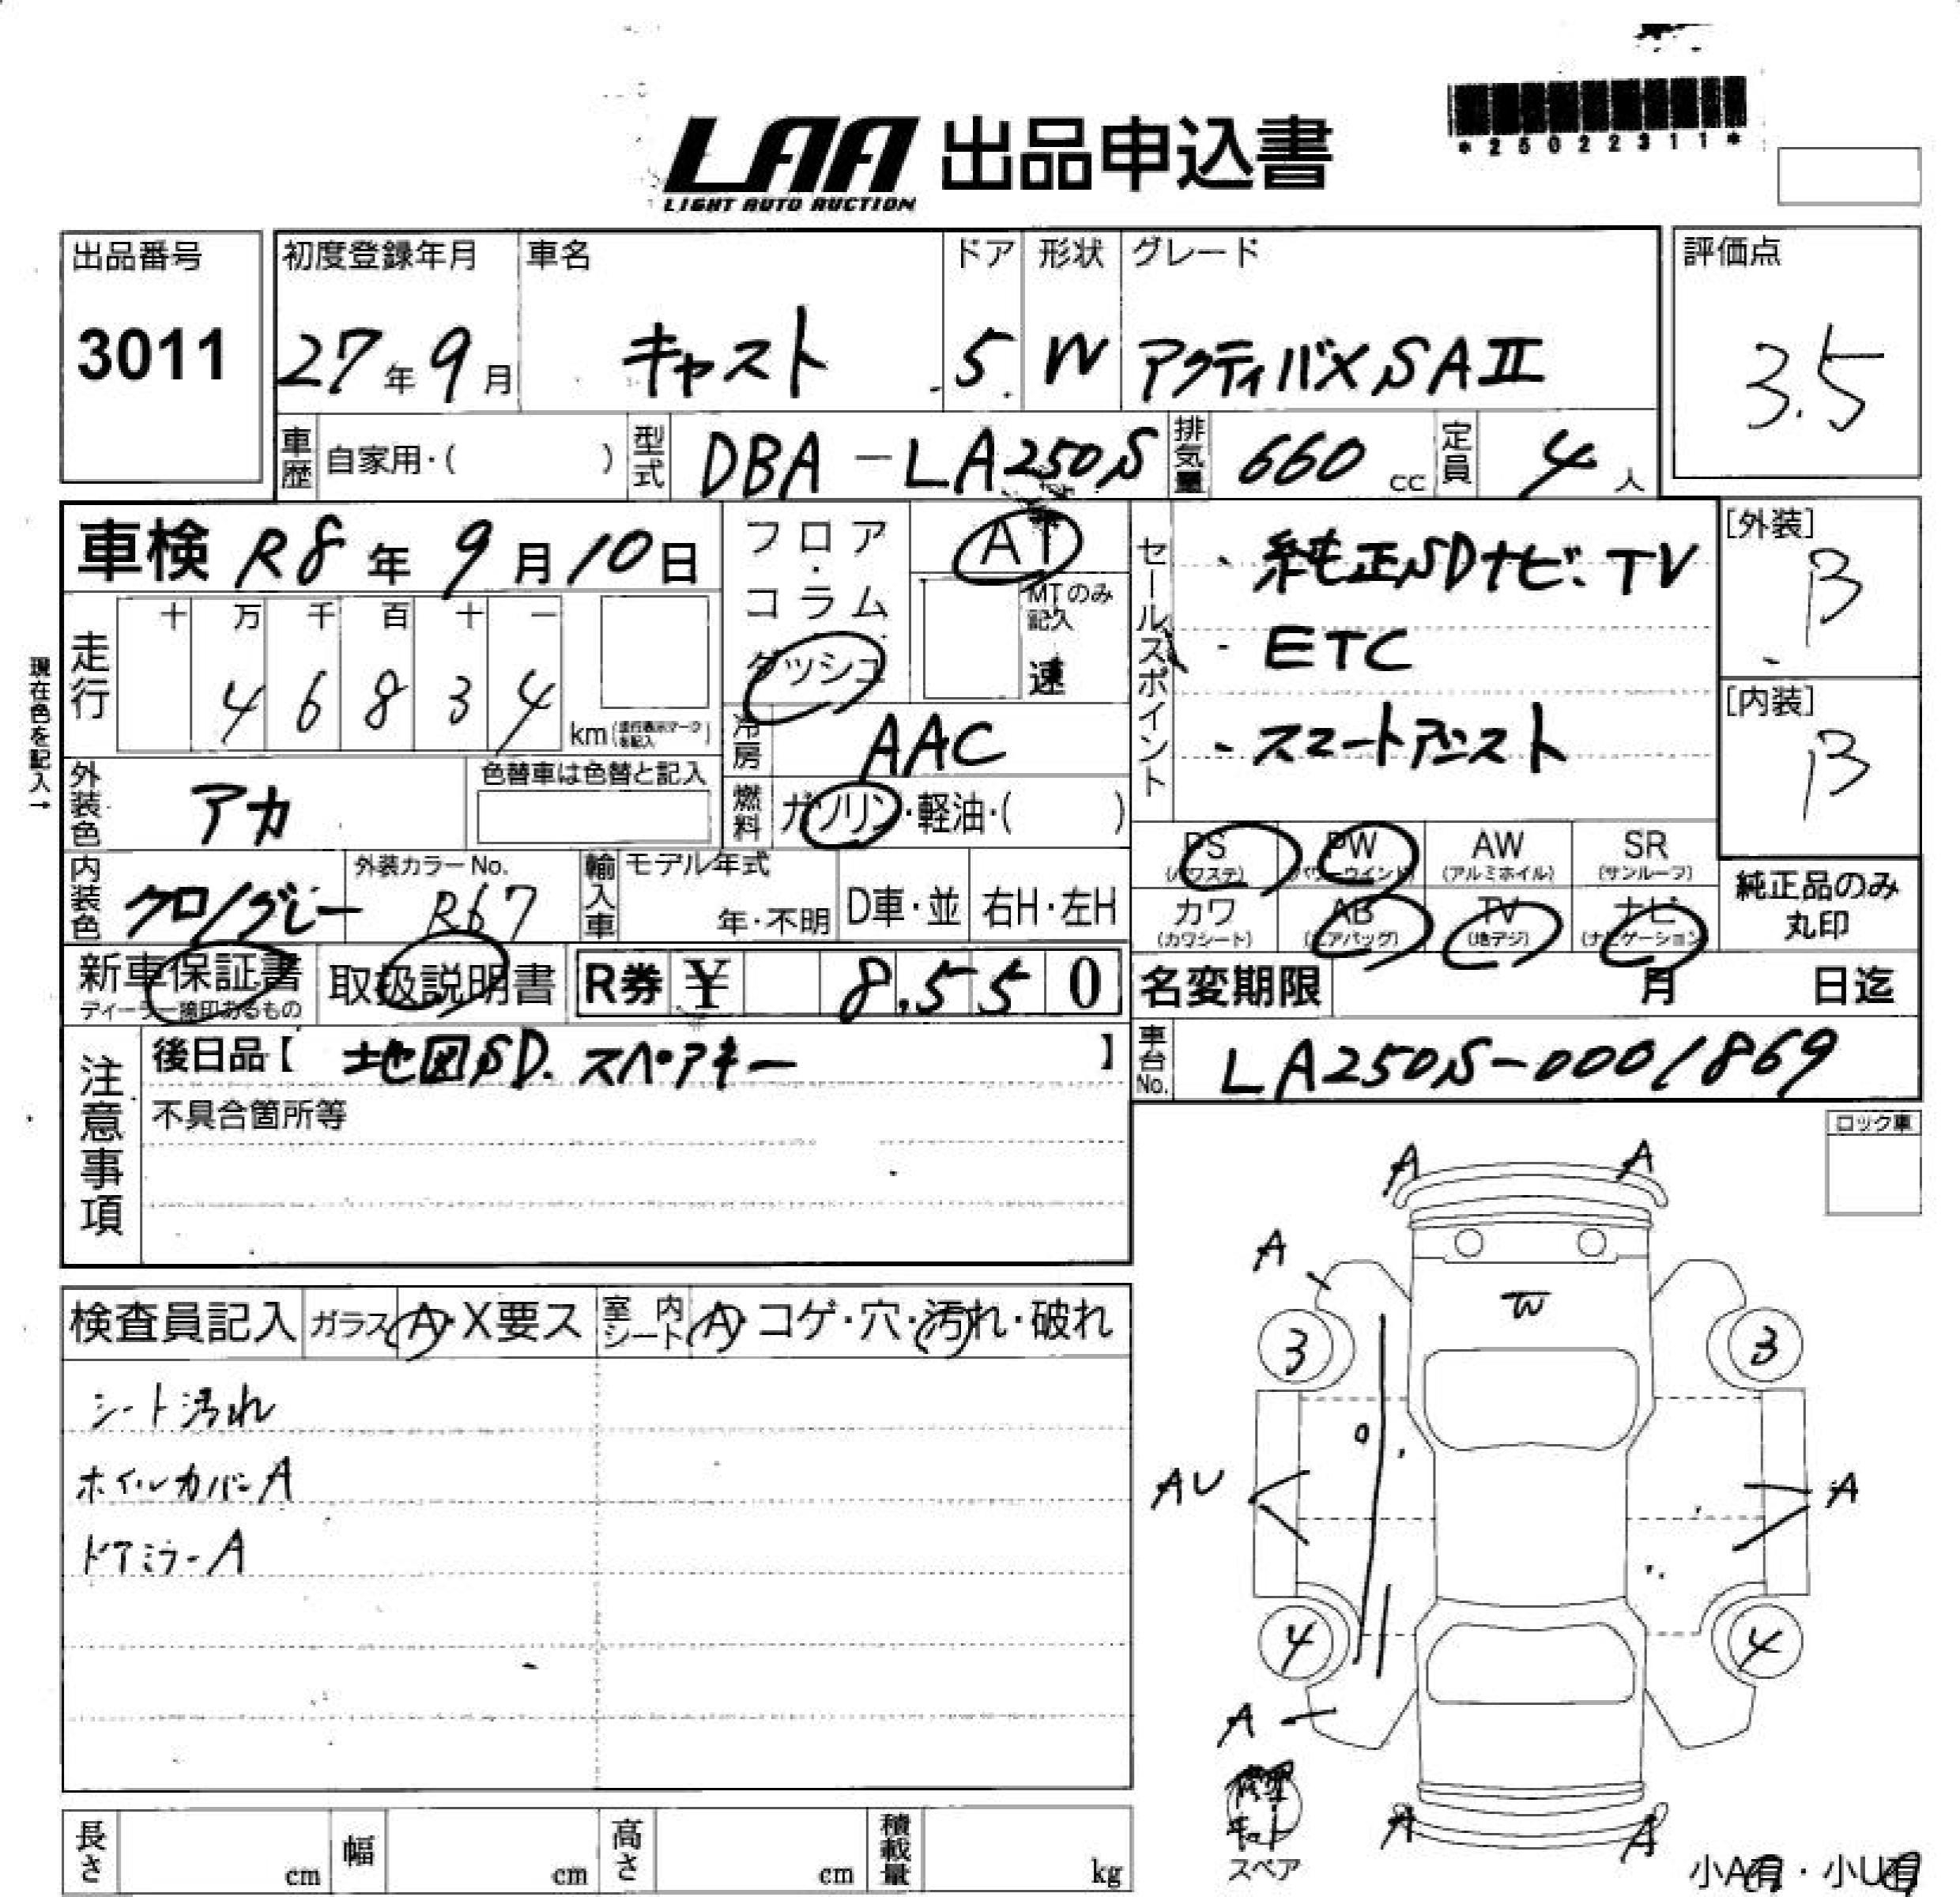 LAA 出品申込書
LIGHT AUTO AUCTION
*25022311*
出品番号
3011
初度登録年月
27年9月
車名
キャスト
ドア
5
形状
W
グレード
アクティバX SAⅡ
評価点
3.5
車歴 自家用・( )
型式 DBA-LA250S
排気量 660 cc
定員 4人
車検 R8年9月10日
フロア・コラム
ダッシュ
AT
MTのみ記入
速
セールスポイント
・純正SDナビ.TV
・ETC
・スマートアシスト
[外装]
B
[内装]
B
現在色を記入→
走行
十 万 千 百 十 一
4 6 8 3 4
km(走行表示マークを記入)
冷房 AAC
外装色 アカ
色替車は色替と記入
燃料 ガソリン・軽油・( )
PS (パワステ)
PW (パワーウインド)
AW (アルミホイル)
SR (サンルーフ)
カワ (カワシート)
AB (エアバッグ)
TV (地デジ)
ナビ (ナビゲーション)
純正品のみ
丸印
内装色 クロ/グレー
外装カラーNo.
R67
輸入車
モデル年式
年・不明
D車・並
右H・左H
新車保証書
ディーラー捺印あるもの
取扱説明書
R券 ¥ 8,550
名変期限 月 日迄
注意事項
後日品【 地図SD. スペアキー 】
車台No. LA250S-0001869
不具合箇所等
ロック車
検査員記入
ガラス A・X要ス
室内シート A・コゲ・穴・汚れ・破れ
シート汚れ
ホイルカバーA
ドアミラーA
A A
A
W
3 3
AU
A
4 4
A
修理キット
スペア
A A
小A有・小U有
長さ cm
幅 cm
高さ cm
積載量 kg